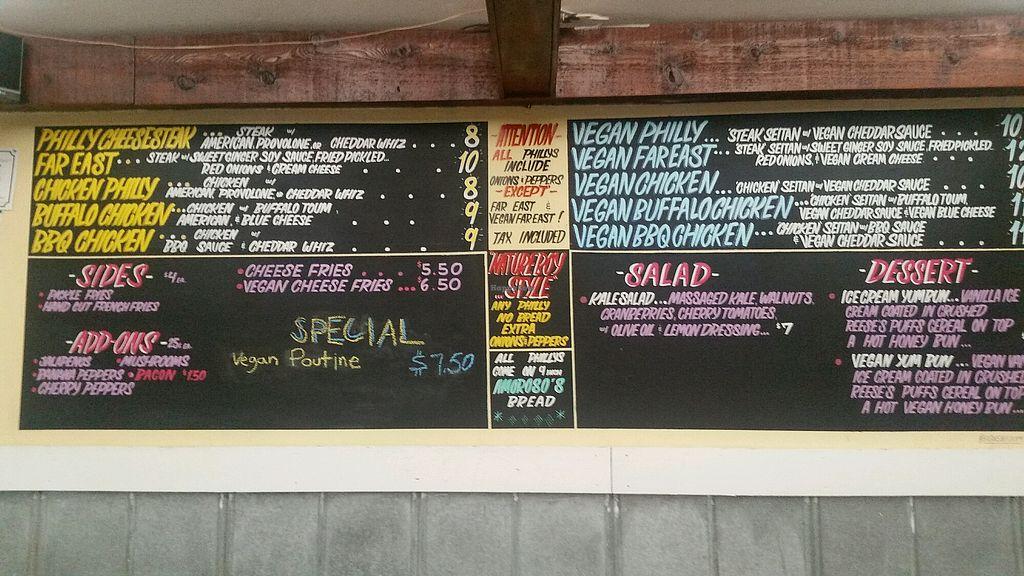 PHILLY CHEESESTEAK ... STEAK w/ AMERICAN, PROVOLONE, OR CHEDDAR WHIZ 8
FAR EAST ... STEAK w/ SWEET GINGER SOY SAUCE, FRIED PICKLED RED ONIONS & CREAM CHEESE 10
CHICKEN PHILLY ... CHICKEN w/ AMERICAN, PROVOLONE, OR CHEDDAR WHIZ 8
BUFFALO CHICKEN ... CHICKEN w/ BUFFALO TOUM, AMERICAN & BLUE CHEESE 9
BBQ CHICKEN ... CHICKEN w/ BBQ SAUCE & CHEDDAR WHIZ 9
-SIDES- $4 ea.
• PICKLE FRIES
• HAND CUT FRENCH FRIES
• CHEESE FRIES .... $5.50
• VEGAN CHEESE FRIES ... $6.50
-ADD-ONS- .75 ea.
• JALAPENOS • MUSHROOMS
• BANANA PEPPERS • BACON $1.50
• CHERRY PEPPERS
SPECIAL
Vegan Poutine $7.50
-ATTENTION-
ALL PHILLYS
INCLUDE
ONIONS & PEPPERS
-EXCEPT-
FAR EAST &
VEGAN FAR EAST!
TAX INCLUDED
NATURE BOY
STYLE
ANY PHILLY
NO BREAD
EXTRA
ONIONS & PEPPERS
ALL PHILLYS
COME ON 9 INCH
AMOROSO'S
BREAD
VEGAN PHILLY ... STEAK SEITAN w/ VEGAN CHEDDAR SAUCE .... 10
VEGAN FAR EAST ... STEAK SEITAN w/ SWEET GINGER SOY SAUCE, FRIED PICKLED RED ONIONS, & VEGAN CREAM CHEESE
VEGAN CHICKEN ... CHICKEN SEITAN w/ VEGAN CHEDDAR SAUCE .... 10
VEGAN BUFFALO CHICKEN ... CHICKEN SEITAN w/ BUFFALO TOUM, VEGAN CHEDDAR SAUCE & VEGAN BLUE CHEESE
VEGAN BBQ CHICKEN ... CHICKEN SEITAN w/ BBQ SAUCE & VEGAN CHEDDAR SAUCE
-SALAD-
• KALE SALAD ... MASSAGED KALE, WALNUTS,
CRANBERRIES, CHERRY TOMATOES,
w/ OLIVE OIL & LEMON DRESSING ... $7
-DESSERT-
• ICE CREAM YUM BUN ... VANILLA ICE
CREAM COATED IN CRUSHED
REESE'S PUFFS CEREAL ON TOP
A HOT HONEY BUN ...
• VEGAN YUM BUN ... VEGAN
ICE CREAM COATED IN CRUSHED
REESE'S PUFFS CEREAL ON TOP
A HOT VEGAN HONEY BUN ...